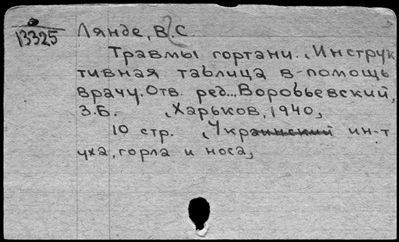 13325
Лянде, В.С.
Травмы гортани. Инструк
тивная таблица в помощь
врачу. Отв. ред... Воробьевский,
З.Б. Харьков, 1940,
10 стр. Украинский ин-т
уха, горла и носа,